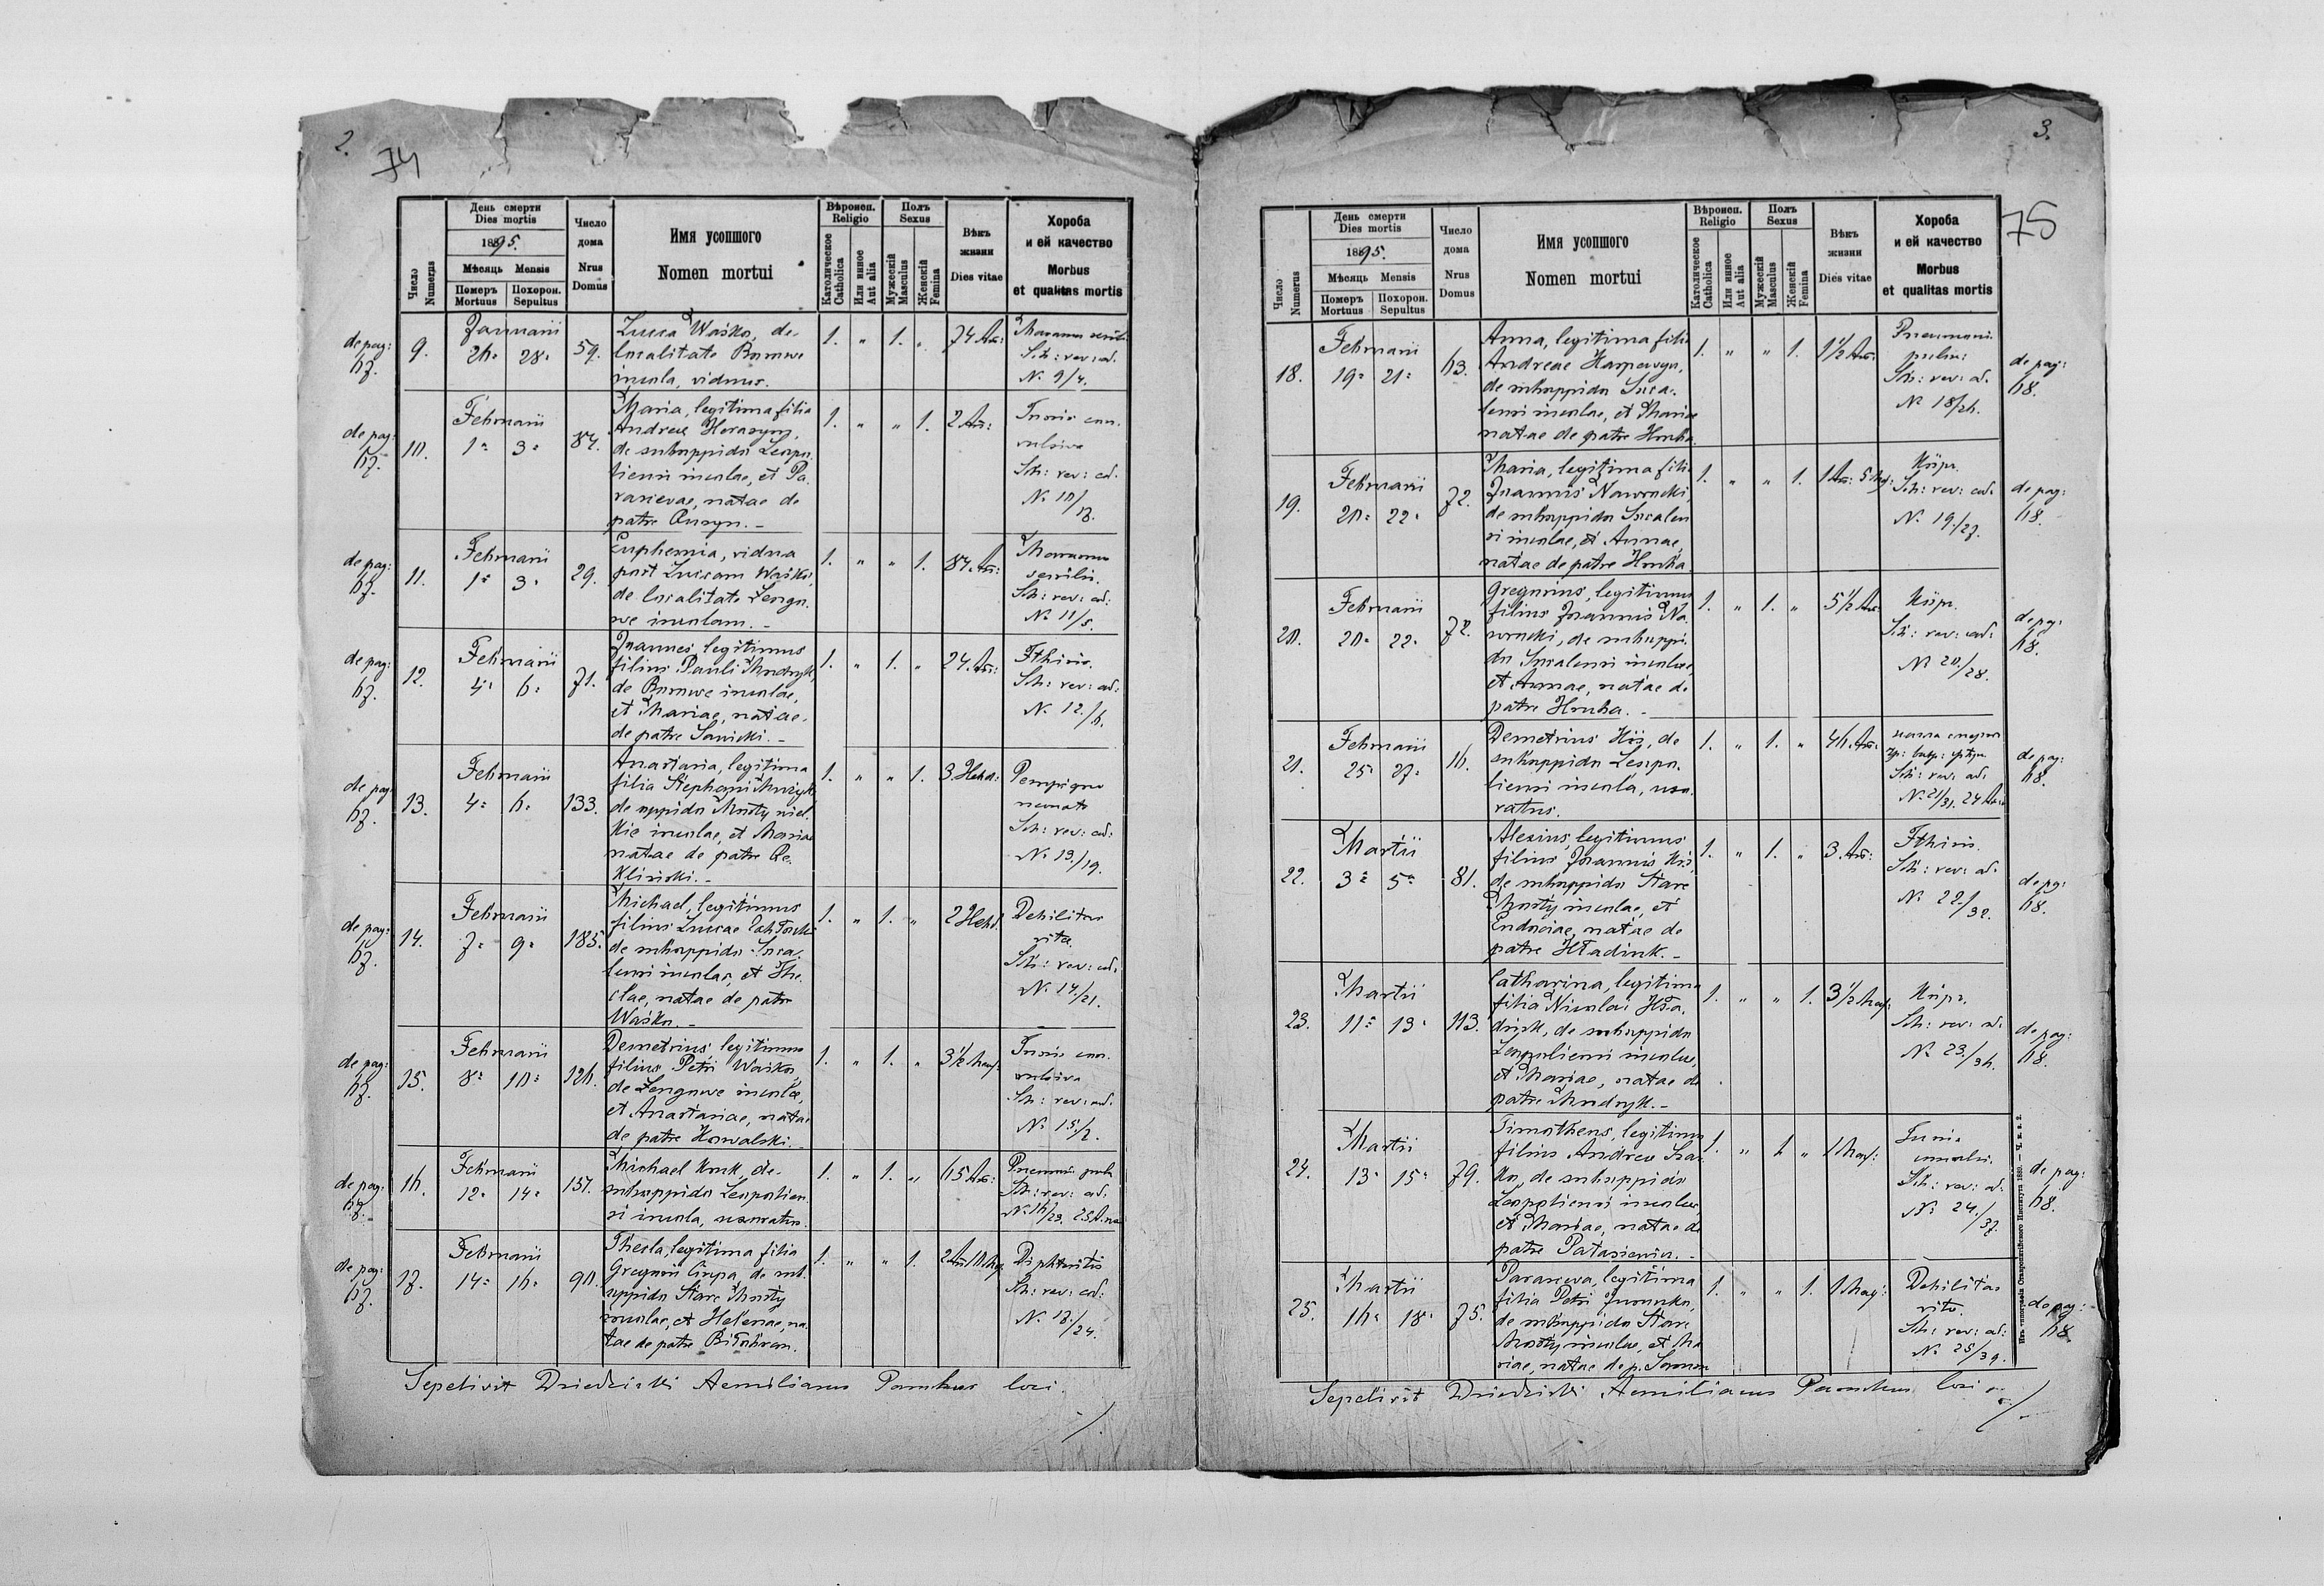 2.
74
День смерти
Dies mortis
1895.
Мѣсяць Mensis
Померъ Mortuus
Похорон. Sepultus
Число Numerus
Число дома
Nrus Domus
Имя усопшого
Nomen mortui
Вѣроисп.
Religio
Католическое Catholica
Или иное Aut alia
Полъ
Sexus
Мужескій Masculus
Женскій Femina
Вѣкъ жизни
Dies vitae
Хороба
и ей качество
Morbus
et qualitas mortis
de pag: 67.
9.
Januarii
26. 28.
59.
Lucca Waśko, de
localitate
incola, viduus.
1. " 1. "
74 An:
Sch: rev: ad.
No 9/4.
de pag: 67.
10.
Februarii
1. 3.
87.
Maria, legitima filia
Andreae Harasym,
de suboppido Leopo-
liensi incolae, et Pa-
rascevae, natae de
patre
1. " " 1.
2 An:
Tussis con-
vulsiva
Sch: rev: ad.
No 10/13.
de pag: 67.
11.
Februarii
1. 3.
29.
Euphemia, vidua
post Luccam Waśko,
de localitate
incolam. -
1. " " 1.
87. An:
Marasmus
senilis.
Sch: rev: ad:
No 11/5.
de pag: 67.
12.
Februarii
4. 6.
71.
Joannes, legitimus
filius Pauli Mudryk,
de incolae,
et Mariae, natae
de patre Sawicki. -
1. " 1. "
24. An:
Fthisis.
Sch: rev: ad:
No 12./6.
de pag: 67.
13.
Februarii
4. 6.
133.
Anastasia, legitima
filia Stephani
de oppido Mosty wiel-
kie incolae, et Mariae
natae de patre
1. " " 1.
3. Hebd:
Pempigus
neonato
Sch: rev: ad:
No 13./19.
de pag: 67.
14.
Februarii
7. 9.
185.
Michael, legitimus
filius Luccae
de suboppido Soca-
lensi incolae, et The-
clae, natae de patre
Waśko. -
1. " 1. "
2 Hebd.
Debilitas
vitae.
Sch: rev: ad.
No 14./21.
de pag: 67.
15.
Februarii
8. 10.
126.
Demetrius legitimus
filius Petri Waśko,
de incolae,
et Anastasiae, natae
de patre Kowalski. -
1. " 1. "
3 1/2
Tussis con-
vulsiva
Sch: rev: ad.
No 15./2.
de pag: 67.
16.
Februarii
12. 14.
157.
Michael Kuk, de
suboppido Leopolien-
si incola, uxoratus.
1. " 1. "
65 An:
Sch: rev: ad.
No 16/23.
de pag: 67.
17.
Februarii
14. 16.
90.
Thecla, legitima filia
Gregorii de sub-
oppido Stare Mosty
incolae, et Helenae, na-
tae de patre
1. " " 1.
Diphteritis
Sch: rev: ad:
No /24.
Sepelivit Dziedzicki Aemilianus Parochus loci.
3.
75
День смерти
Dies mortis
1895.
Мѣсяць Mensis
Померъ Mortuus
Похорон. Sepultus
Число Numerus
Число дома
Nrus Domus
Имя усопшого
Nomen mortui
Вѣроисп.
Religio
Католическое Catholica
Или иное Aut alia
Полъ
Sexus
Мужескій Masculus
Женскій Femina
Вѣкъ жизни
Dies vitae
Хороба
и ей качество
Morbus
et qualitas mortis
18.
Februarii
19. 21.
63.
Anna, legitima filia
Andreae
de suboppido Soca-
lensi incolae, et Mariae
natae de patre Hruba.
1. " " 1.
1 1/2 An:
Pneumoni
pulm:
Sch: rev: ad.
No 18/26.
de pag: 68.
19.
Februarii
20. 22.
72.
Maria, legitima filia
Joannis Naworocki,
de suboppido Socalen-
si incolae, et Annae,
natae de patre Hruba
1. " " 1.
Köpr.
Sch: rev: ad:
No 19./27.
de pag: 68.
20.
Februarii
20. 22.
72.
Gregorius, legitimus
filius Joannis Na-
worocki, de suboppi-
do Socalensi incolae,
et Annae, natae de
patre Hruba. -
1. " 1. "
5 1/2 An:
Köpr.
Sch: rev: ad:
No 20./28.
de pag: 68.
21.
Februarii
25. 27.
16.
Demetrius de
suboppido Leopo-
liensi incola, uxo-
ratus.
1. " 1. "
46. An:
Sch: rev: ad.
No 21/31.
de pag: 68.
22.
Martii
3. 5.
81.
Alexius, legitimus
filius Joannis
de suboppido Stare
Mosty incolae, et
Eudociae, natae de
patre Hładiuk. -
1. " 1. "
3. An:
Fthisis.
Sch: rev: ad.
No 22./32.
de pag: 68.
23.
Martii
11. 13.
113.
Catharina, legitima
filia Nicolai Hła-
diuk, de suboppido
Leopoliensi incolae,
et Mariae, natae de
patre Mudryk. -
1. " " 1.
3 1/2
Köpr.
Sch: rev: ad.
No 23./36.
de pag: 68.
24.
Martii
13. 15.
79.
Timotheus, legitimus
filius Andreae
de suboppido
Leopoliensi incolae,
et Mariae, natae de
patre
1. " 1. "
Tussis
convulsi.
Sch: rev: ad.
No 24./37.
de pag: 68.
25.
Martii
16. 18.
75.
Parasceva, legitima
filia Petri
de suboppido Stare
Mosty incolae, et Ma-
riae, natae de p.
1. " " 1.
Debilitas
vitae.
Sch: rev: ad:
No 25/39.
de pag: 68
Sepelivit Dziedzicki Aemilianus Parochus loci
Изъ типографіи Ставропигійского Института 1880.